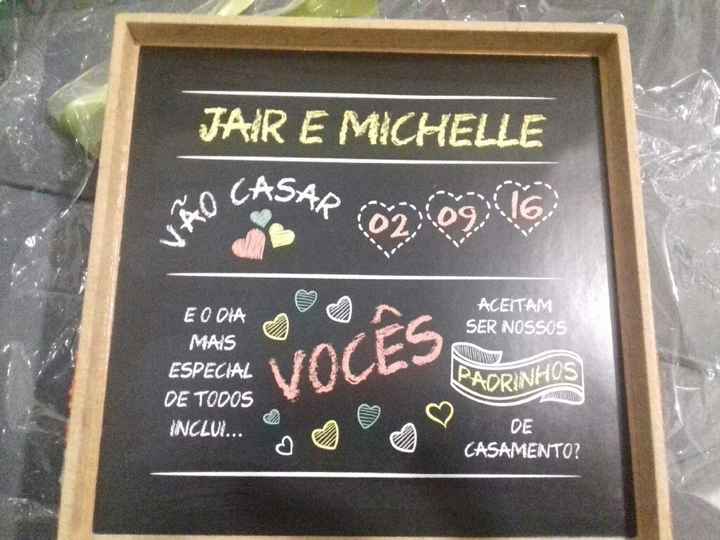 JAIR E MICHELLE
VÃO CASAR
02 09 16
E O DIA
MAIS
ESPECIAL
DE TODOS
INCLUI...
VOCÊS
ACEITAM
SER NOSSOS
PADRINHOS
DE
CASAMENTO?